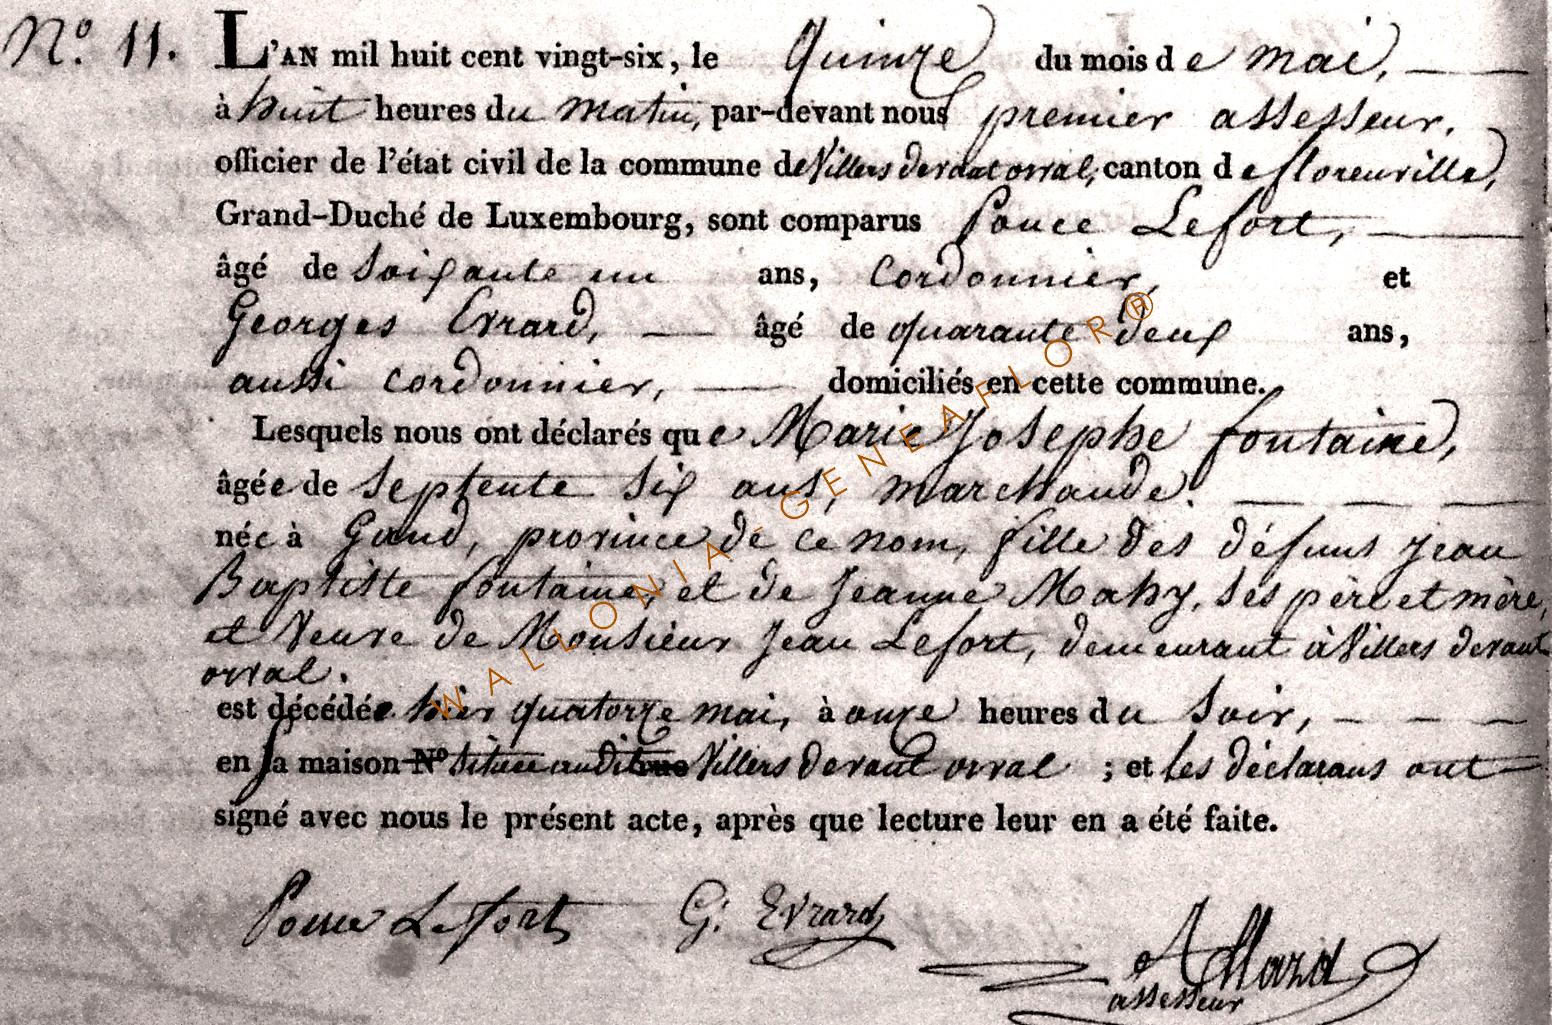 N.o 11. L'AN mil huit cent vingt-six, le Quinze du mois de mai,
à huit heures du matin, par-devant nous premier assesseur,
officier de l'état civil de la commune de Villers devant orval, canton de florenville,
Grand-Duché de Luxembourg, sont comparus Ponce Lefort,
âgé de Soixante un ans, Cordonnier, et
Georges Evrard, âgé de quarante deux ans,
aussi cordonnier, domiciliés en cette commune.
Lesquels nous ont déclarés que Marie Josephe fontaine,
âgée de septente six ans, marchande.
née à Gand, province de ce nom, fille des défuns Jean
Baptiste fontaine, et de Jeanne Mahy, ses père et mère,
et Veuve de Monsieur Jean Lefort, demeurant à Villers devant
orval.
est décédée hier quatorze mai, à onze heures du Soir,
en sa maison N° située audit rue Villers devant orval ; et les déclarans ont
signé avec nous le présent acte, après que lecture leur en a été faite.
Ponce Lefort G: Evrard
Allard
assesseur
WALLONIA-GENEAFLOR®